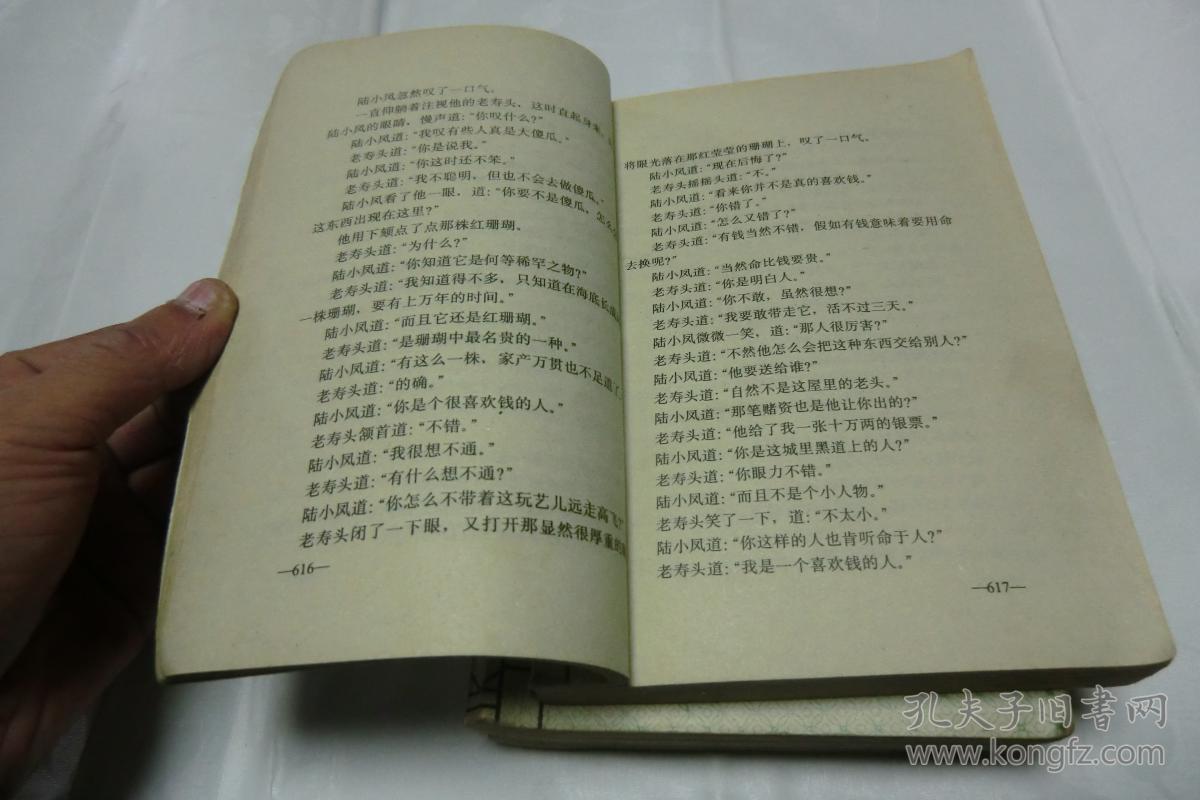 陆小凤忽然叹了一口气。
一直仰躺着注视他的老寿头，这时直起身来，
陆小凤的眼睛，慢声道：“你叹什么？”
陆小凤道：“我叹有些人真是大傻瓜。”
老寿头道：“你是说我。”
陆小凤道：“你这时还不笨。”
老寿头道：“我不聪明，但也不会去做傻瓜。”
陆小凤看了他一眼，道：“你要不是傻瓜，怎么
这东西出现在这里？”
他用下颏点了点那株红珊瑚。
老寿头道：“为什么？”
陆小凤道：“你知道它是何等稀罕之物？”
老寿头道：“我知道得不多，只知道在海底长成
一株珊瑚，要有上万年的时间。”
陆小凤道：“而且它还是红珊瑚。”
老寿头道：“是珊瑚中最名贵的一种。”
陆小凤道：“有这么一株，家产万贯也不足道了。
老寿头道：“的确。”
陆小凤道：“你是个很喜欢钱的人。”
老寿头颔首道：“不错。”
陆小凤道：“我很想不通。”
老寿头道：“有什么想不通？”
陆小凤道：“你怎么不带着这玩艺儿远走高飞？”
老寿头闭了一下眼，又打开那显然很厚重的
—616—
将眼光落在那红莹莹的珊瑚上，叹了一口气。
陆小凤道：“现在后悔了？”
老寿头摇摇头道：“不。”
陆小凤道：“看来你并不是真的喜欢钱。”
老寿头道：“你错了。”
陆小凤道：“怎么又错了？”
老寿头道：“有钱当然不错，假如有钱意味着要用命
去换呢？”
陆小凤道：“当然命比钱要贵。”
老寿头道：“你是明白人。”
陆小凤道：“你不敢，虽然很想？”
老寿头道：“我要敢带走它，活不过三天。”
陆小凤微微一笑，道：“那人很厉害？”
老寿头道：“不然他怎么会把这种东西交给别人？”
陆小凤道：“他要送给谁？”
老寿头道：“自然不是这屋里的老头。”
陆小凤道：“那笔赌资也是他让你出的？”
老寿头道：“他给了我一张十万两的银票。”
陆小凤道：“你是这城里黑道上的人？”
老寿头道：“你眼力不错。”
陆小凤道：“而且不是个小人物。”
老寿头笑了一下，道：“不太小。”
陆小凤道：“你这样的人也肯听命于人？”
老寿头道：“我是一个喜欢钱的人。”
—617—
孔夫子旧書网
www.kongfz.com